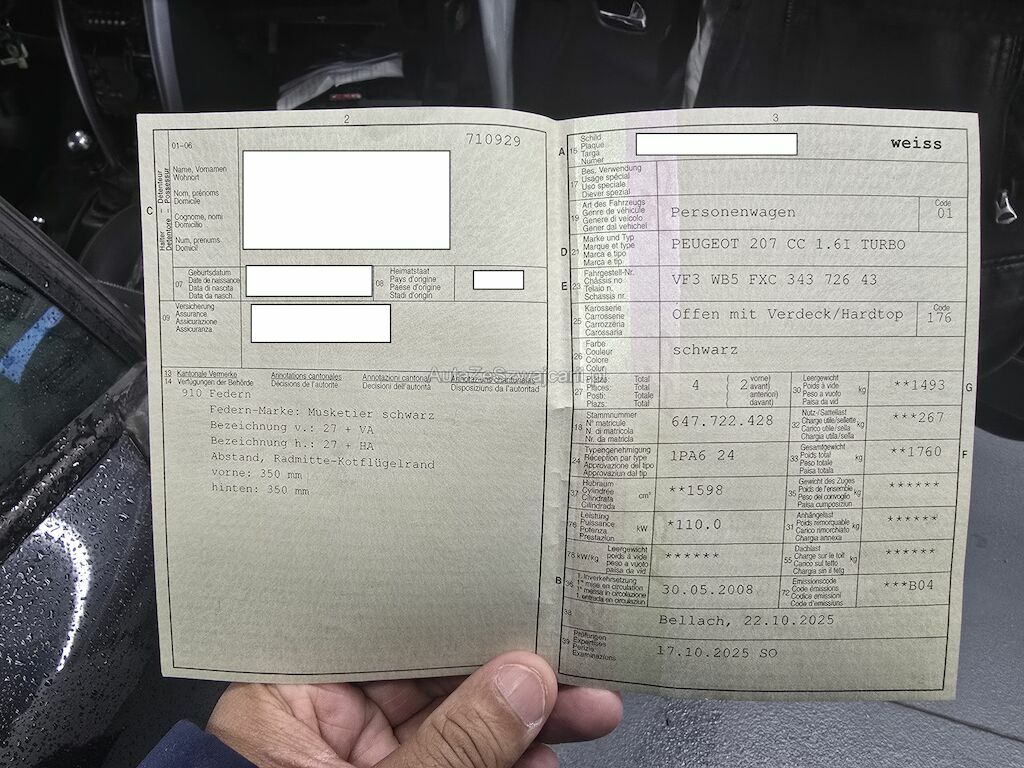 2
710929
01-06
Name, Vornamen
Wohnort
Nom, prénoms
Domicile
Cognome, nomi
Domicilio
Num, prenums
Domicil
C
Halter Détenteur
Detentore Possessur
07
Geburtsdatum
Date de naissance
Data di nascita
Data da nasch.
08
Heimatstaat
Pays d'origine
Paese d'origine
Stadi d'origin
09
Versicherung
Assurance
Assicurazione
Assicuranza
13
14
Kantonale Vermerke
Verfügungen der Behörde
Annotations cantonales
Décisions de l'autorité
Annotazioni cantonali
Decisioni dell'autorità
Annotaziuns chantunalas
Disposiziuns da l'autoritad
910 Federn
Federn-Marke: Musketier schwarz
Bezeichnung v.: 27 + VA
Bezeichnung h.: 27 + HA
Abstand, Radmitte-Kotflügelrand
vorne: 350 mm
hinten: 350 mm
AutaZeSzwajcarii
3
A 15
Schild
Plaque
Targa
Numer
weiss
17
Bes. Verwendung
Usage spécial
Uso speciale
Diever spezial
19
Art des Fahrzeugs
Genre de véhicule
Genere di veicolo
Gener dal vehichel
Personenwagen
Code
01
D 21
Marke und Typ
Marque et type
Marca e tipo
Marca e tip
PEUGEOT 207 CC 1.6I TURBO
E 23
Fahrgestell-Nr.
Châssis no
Telaio n.
Schassis nr.
VF3 WB5 FXC 343 726 43
25
Karosserie
Carrosserie
Carrozzeria
Carossaria
Offen mit Verdeck/Hardtop
Code
176
26
Farbe
Couleur
Colore
Colur
schwarz
27
Plätze: Total
Places: Total
Posti: Totale
Plazs: Total
4
( 2 vorne)
avant)
anteriori)
davant)
30
Leergewicht
Poids à vide
Peso a vuoto
Paisa da vid
kg
**1493
G
18
Stammnummer
N° matricule
N. di matricola
Nr. da matricla
647.722.428
32
Nutz-/Sattellast
Charge utile/sellette
Carico utile/sella
Chargia utila/sella
kg
***267
24
Typengenehmigung
Réception par type
Approvazione del tipo
Approvaziun dal tip
1PA6 24
33
Gesamtgewicht
Poids total
Peso totale
Paisa totala
kg
**1760
F
37
Hubraum
Cylindrée
Cilindrata
Cilindrada
cm³
**1598
35
Gewicht des Zuges
Poids de l'ensemble
Peso del convoglio
Paisa cumposiziun
kg
******
76
Leistung
Puissance
Potenza
Prestaziun
kW
*110.0
31
Anhängelast
Poids remorquable
Carico rimorchiato
Chargia annexa
kg
******
78 kW/kg
Leergewicht
poids à vide
peso a vuoto
paisa da vid
******
55
Dachlast
Charge sur le toit
Carico sul tetto
Chargia sin il tetg
kg
******
B 36
1. Inverkehrsetzung
1re mise en circulation
1a messa in circolazione
1. entrada en circulaziun
30.05.2008
72
Emissionscode
Code émissions
Codice emissioni
Code d'emissiuns
***B04
38
Bellach, 22.10.2025
39
Prüfungen
Expertises
Perizie
Examinaziuns
17.10.2025 SO